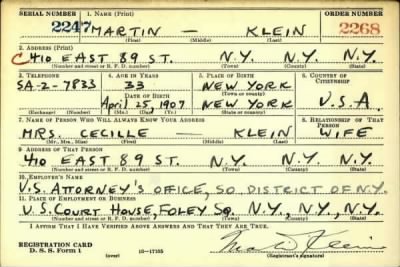 SERIAL NUMBER 1. NAME (Print) ORDER NUMBER
2247 MARTIN — KLEIN 2268
(First) (Middle) (Last)
2. ADDRESS (Print)
410 EAST 89 ST. N.Y. N.Y. N.Y.
(Number and street or R. F. D. number) (Town) (County) (State)
3. TELEPHONE 4. AGE IN YEARS 5. PLACE OF BIRTH 6. COUNTRY OF CITIZENSHIP
SA-2-7833 33 NEW YORK
DATE OF BIRTH (Town or county)
April 25, 1907 NEW YORK U.S.A.
(Exchange) (Number) (Mo.) (Day) (Yr.) (State or country)
7. NAME OF PERSON WHO WILL ALWAYS KNOW YOUR ADDRESS 8. RELATIONSHIP OF THAT PERSON
MRS. CECILLE — KLEIN WIFE
(Mr., Mrs., Miss) (First) (Middle) (Last)
9. ADDRESS OF THAT PERSON
410 EAST 89 ST. N.Y. N.Y. N.Y.
(Number and street or R. F. D. number) (Town) (County) (State)
10. EMPLOYER'S NAME
U.S. ATTORNEY'S OFFICE, SO. DISTRICT OF N.Y.
11. PLACE OF EMPLOYMENT OR BUSINESS
U.S. COURT HOUSE, FOLEY SQ. N.Y., N.Y., N.Y.
(Number and street or R. F. D. number) (Town) (County) (State)
I AFFIRM THAT I HAVE VERIFIED ABOVE ANSWERS AND THAT THEY ARE TRUE.
REGISTRATION CARD Martin Klein
D. S. S. Form 1 16—17105 (over) (Registrant's signature)